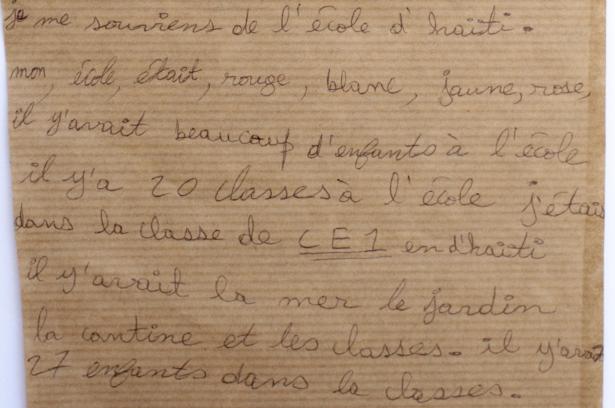 je me souviens de l'école d'haïti.
mon, école, était, rouge, blanc, jaune, rose,
il y'avait beaucoup d'enfants à l'école
il y'a 20 classes à l'école j'étais
dans la classe de CE1 en d'haïti
il y'avait la mer le jardin
la cantine et les classes. il y'avait
27 enfants dans la classes.